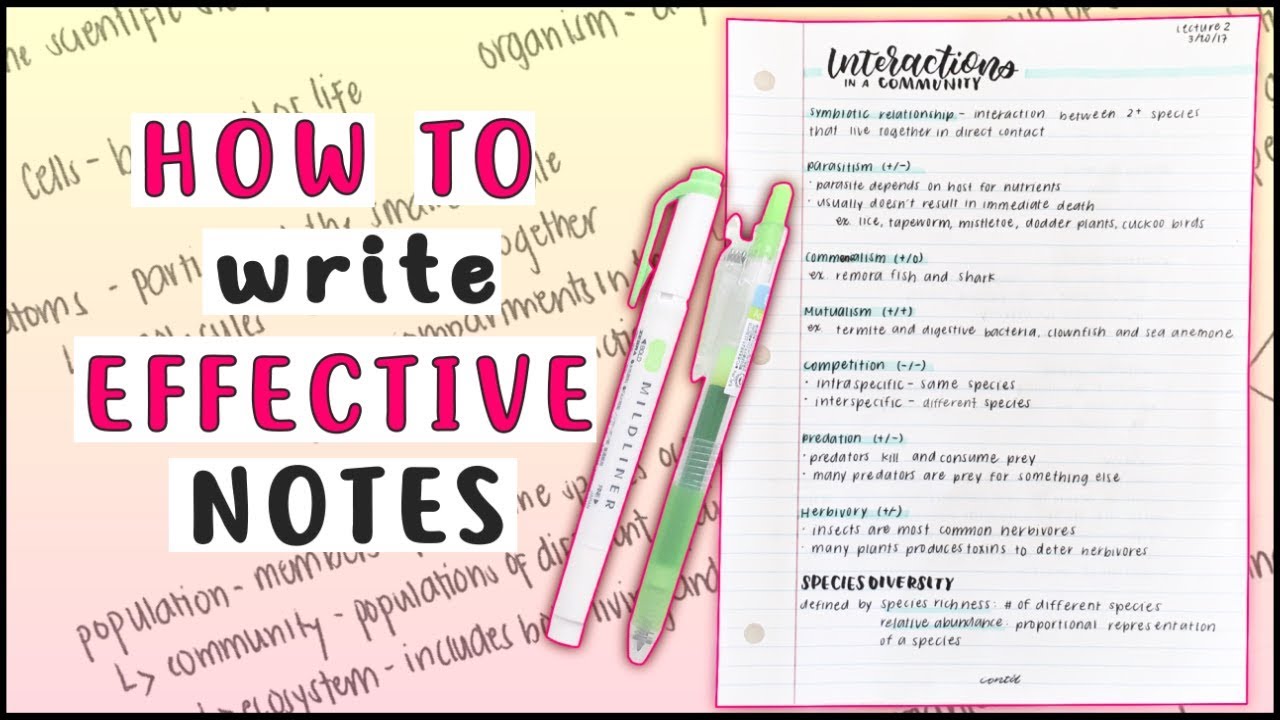 HOW TO
write
EFFECTIVE
NOTES
the scientific
organism -
life
cells -
atoms -
together
population -
↳ community - populations of
↳ ecosystem - includes
living
MILDLINER
Lecture 2
3/20/17
Interactions
IN A COMMUNITY
symbiotic relationship - interaction between 2+ species
that live together in direct contact
parasitism (+/-)
· parasite depends on host for nutrients
· usually doesn't result in immediate death
ex. lice, tapeworm, mistletoe, dodder plants, cuckoo birds
commensalism (+/0)
ex. remora fish and shark
Mutualism (+/+)
ex. termite and digestive bacteria, clownfish and sea anemone
competition (-/-)
· intraspecific - same species
· interspecific - different species
predation (+/-)
· predators kill and consume prey
· many predators are prey for something else
Herbivory (+/-)
· insects are most common herbivores
· many plants produces toxins to deter herbivores
SPECIES DIVERSITY
defined by species richness: # of different species
relative abundance: proportional representation
of a species
cont'd